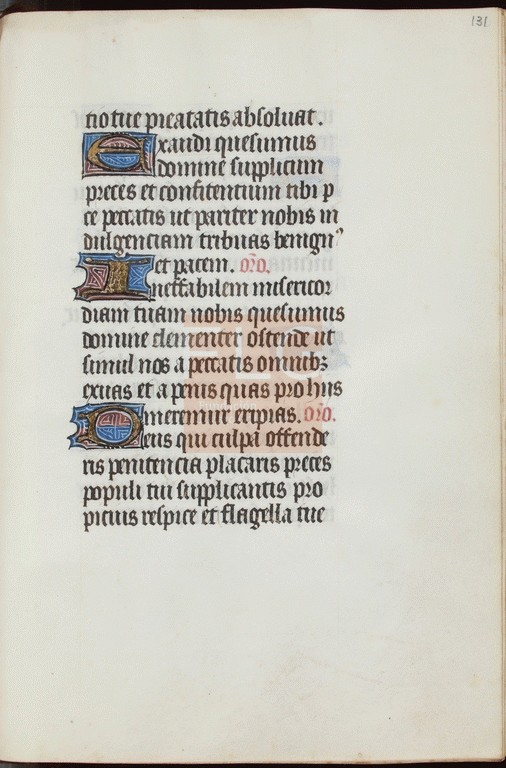 131
tio tue pietatis absoluat.
Exaudi quesumus
domine supplicum
preces et confitentium tibi p
ce peccatis ut pariter nobis in
dulgenciam tribuas benign⁹
et pacem. oro.
Ineffabilem misericor
diam tuam nobis quesumus
domine clementer ostende ut
simul nos a peccatis omnibꝫ
exuas et a penis quas pro hiis
meremur eripias. oro.
Deus qui culpa offende
ris penitencia placaris preces
populi tui supplicantis pro
picius respice et flagella tue